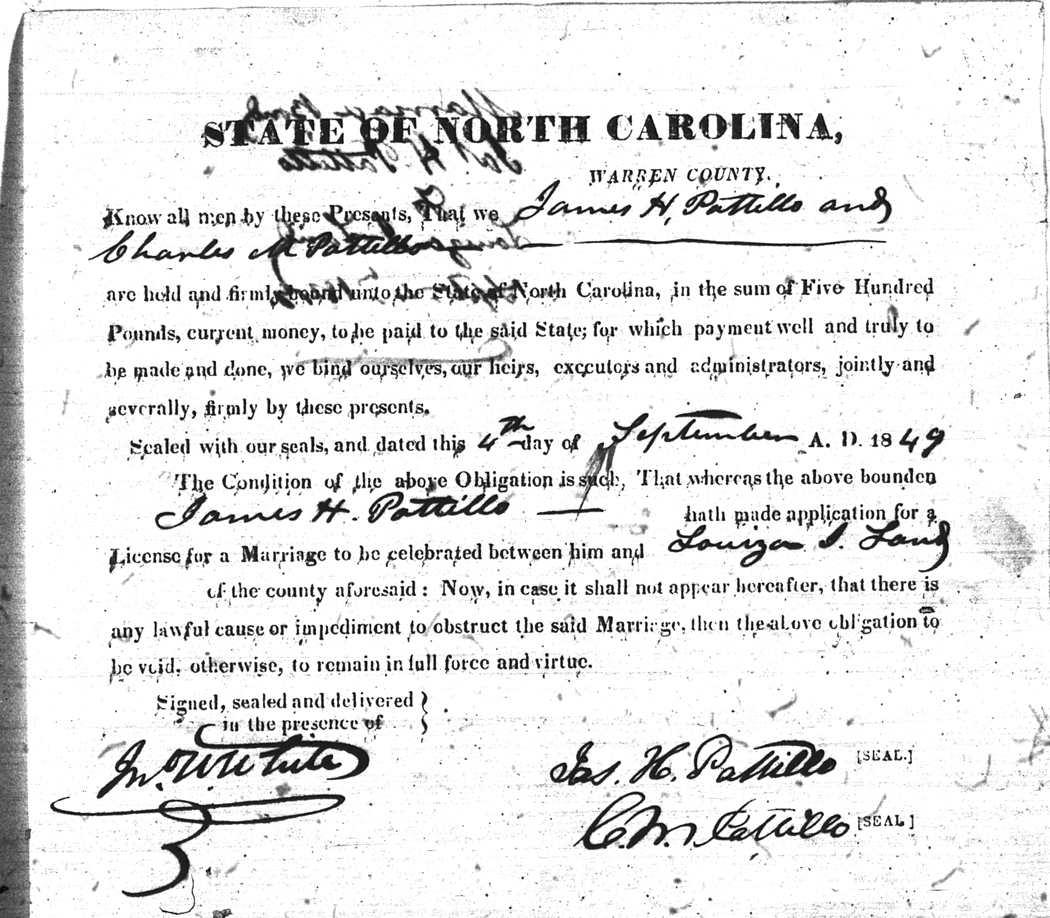 STATE OF NORTH CAROLINA,
WARREN COUNTY.
Know all men by these Presents, That we James H, Pattillo and
Charles M Pattillo
are held and firmly bound unto the State of North Carolina, in the sum of Five Hundred
Pounds, current money, to be paid to the said State; for which payment well and truly to
be made and done, we bind ourselves, our heirs, executors and administrators, jointly and
severally, firmly by these presents.
Sealed with our seals, and dated this 4th day of September A. D. 1849
The Condition of the above Obligation is such, That whereas the above bounden
James H. Pattillo hath made application for a
License for a Marriage to be celebrated between him and Louiza
of the county aforesaid : Now, in case it shall not appear hereafter, that there is
any lawful cause or impediment to obstruct the said Marriage, then the above obligation to
be void, otherwise, to remain in full force and virtue.
Signed, sealed and delivered }
in the presence of
Jno. W. White
Jas. H. Pattillo [SEAL.]
C. M. Pattillo [SEAL]